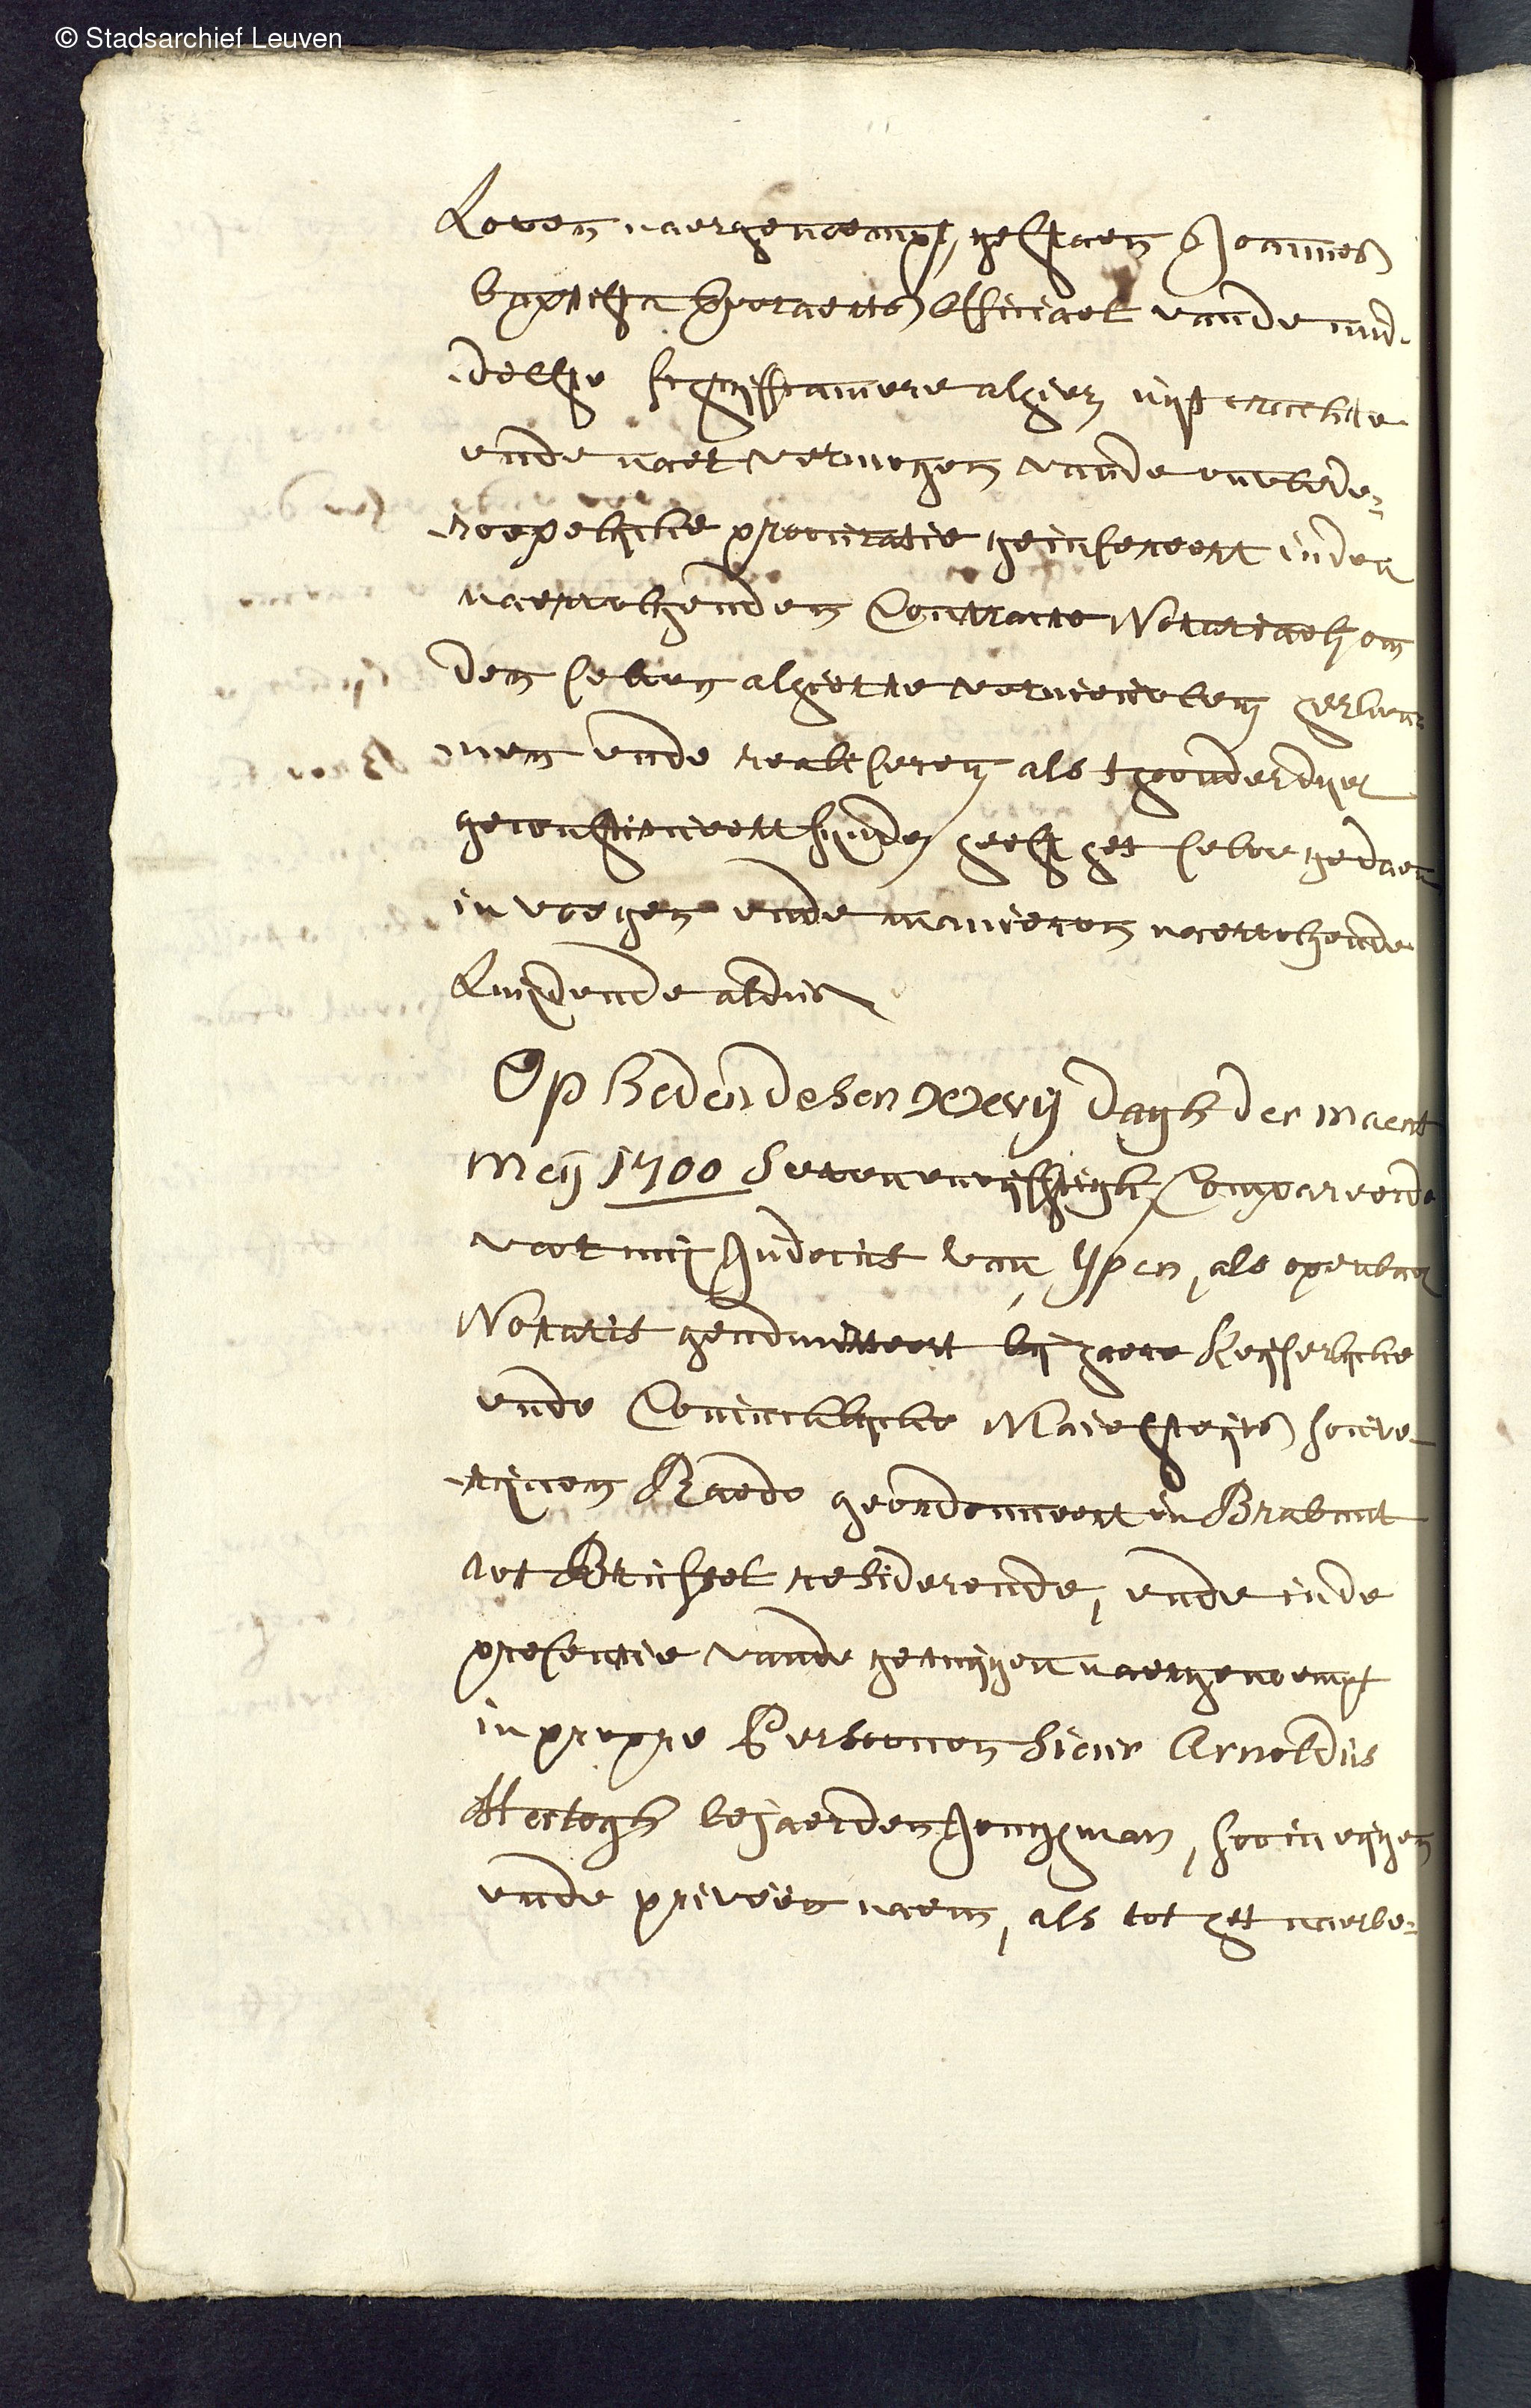 © Stadsarchief Leuven
Loven naergenoempt, gestaen Joannes
baptista Officiael vande mid-
-delste schrijffcamere alhier uijt crachte
ende naer vermogen vande onwede-
roepelijcke procuratie geinsereert inden
naervolgenden Contracte Notariael, om
den selven alhier te vernieuwen, herken-
nen ende realiseren als thoonderdyer
geconstitueert sijnde, heeft het selve gedaen
in voegen ende manieren naervolgende
Luijdende aldus
Op heden desen xxvij dagh der maent
Meij 1700 Sevenenvijfftigh, Compareerde
voor mij Judocus Van Ypen, als openbaer
Notaris geadmitteert bij haere Keijserlijcke
ende Conincklijcke Majesteijts souve-
rijnen Raede geordonneert in Brabant
tot Brussel residerende, ende inde
presentie vande getuijgen naergenoempt
in propre Persoonen Sieur Arnoldus
Hertogh bejaerden jonghman, soo in eijgen
ende priveën naem, als tot het naerbe-